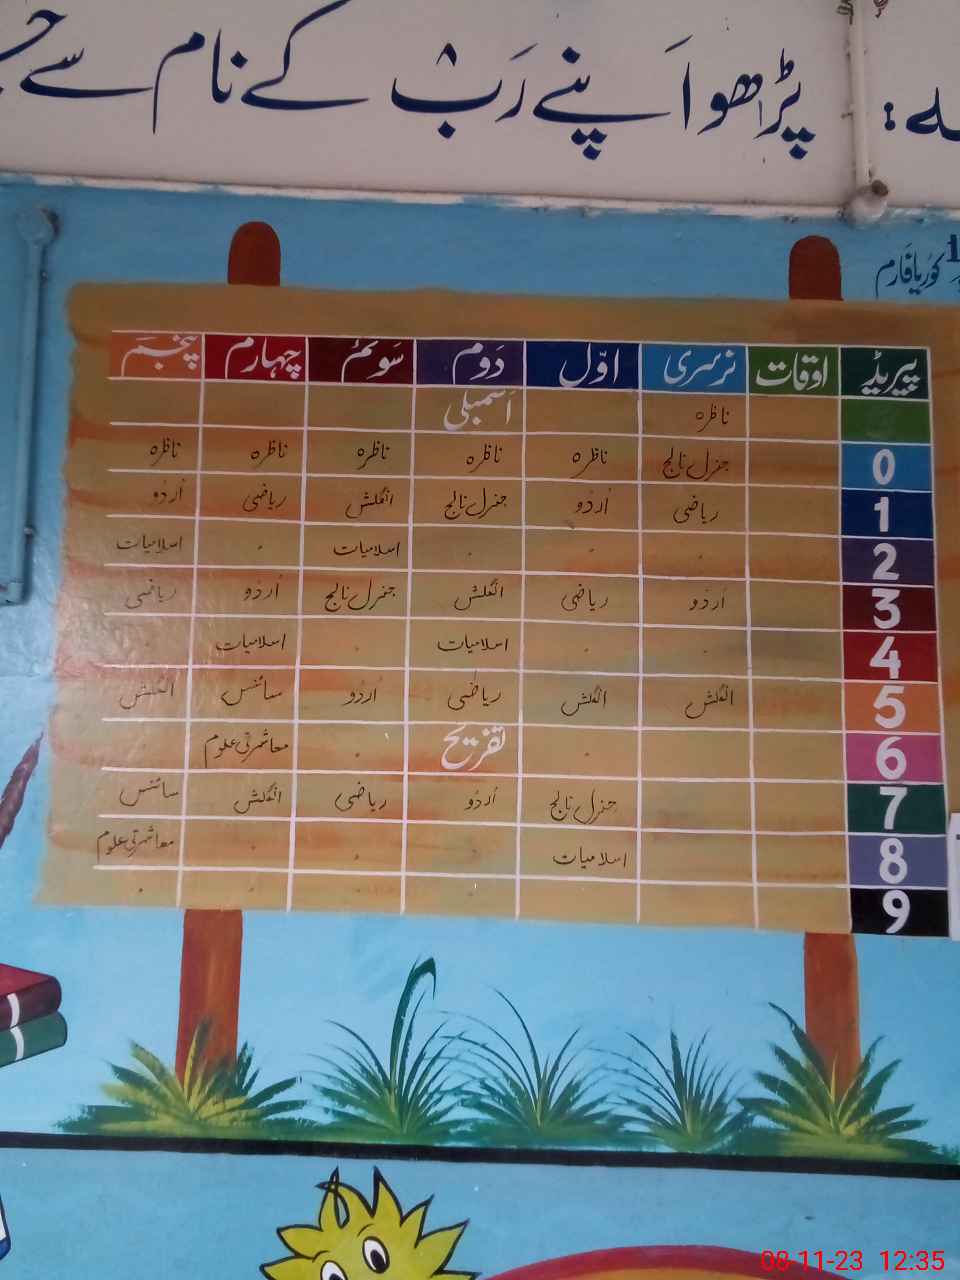 پڑھو اپنے رَبْ کے نام سے
کوریا فارم
پیریڈ اوقات نرسری اوّل دَوم سَوئم چہارم پنجم
ناظرہ اسمبلی
0 جنرل نالج ناظرہ ناظرہ ناظرہ ناظرہ ناظرہ
1 ریاضی اُردُو جنرل نالج انگلش ریاضی اُردُو
2 اسلامیات اسلامیات
3 اُردُو ریاضی انگلش جنرل نالج اُردُو ریاضی
4 اسلامیات اسلامیات
5 انگلش انگلش ریاضی اُردُو سائنس انگلش
6 تفریح معاشرتی علوم
7 جنرل نالج اُردُو ریاضی انگلش سائنس
8 اسلامیات معاشرتی علوم
9
08-11-23 12:35